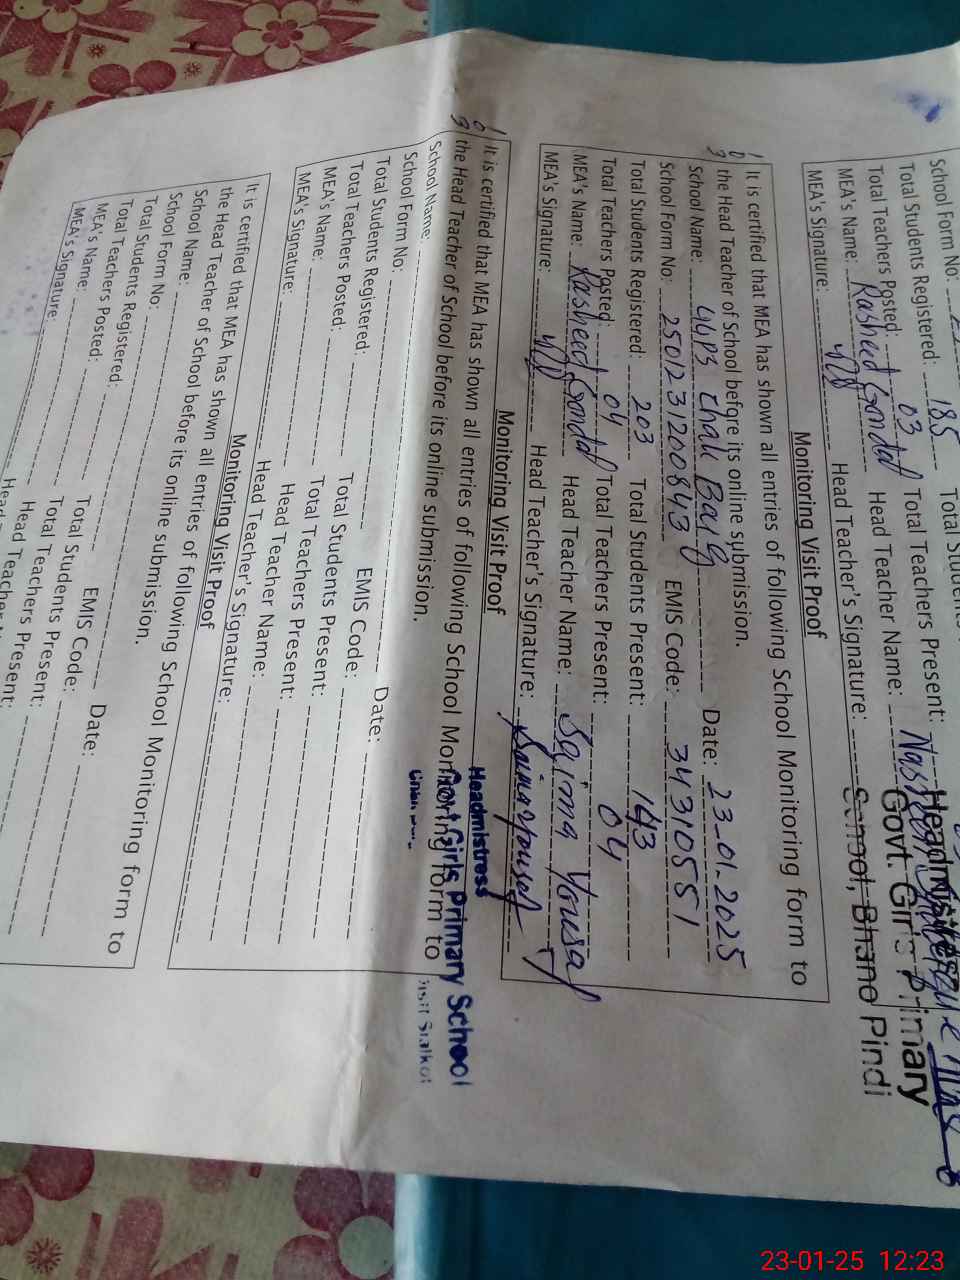 School Form No:
Total Students Registered: 185 Total Students
Total Teachers Posted: 03 Total Teachers Present:
MEA's Name: Rasheed Gondal Head Teacher Name:
MEA's Signature: Head Teacher's Signature:
Headmistress
Govt. Girls Primary
School, Bhano Pindi
Monitoring Visit Proof
It is certified that MEA has shown all entries of following School Monitoring form to
the Head Teacher of School before its online submission.
School Name: GGPS Chak Baig Date: 23-01-2025
School Form No: 2501231200843 EMIS Code: 34310551
Total Students Registered: 203 Total Students Present: 143
Total Teachers Posted: 04 Total Teachers Present: 04
MEA's Name: Rasheed Gondal Head Teacher Name: Saima Yousaf
MEA's Signature: Head Teacher's Signature: Saima Yousaf
Headmistress
Govt Girls Primary School
Sialkot
Monitoring Visit Proof
It is certified that MEA has shown all entries of following School Monitoring form to
the Head Teacher of School before its online submission.
School Name: Date:
School Form No: EMIS Code:
Total Students Registered: Total Students Present:
Total Teachers Posted: Total Teachers Present:
MEA's Name: Head Teacher Name:
MEA's Signature: Head Teacher's Signature:
Monitoring Visit Proof
It is certified that MEA has shown all entries of following School Monitoring form to
the Head Teacher of School before its online submission.
School Name: Date:
School Form No: EMIS Code:
Total Students Registered: Total Students Present:
Total Teachers Posted: Total Teachers Present:
MEA's Name: Head Teacher
MEA's Signature:
23-01-25 12:23